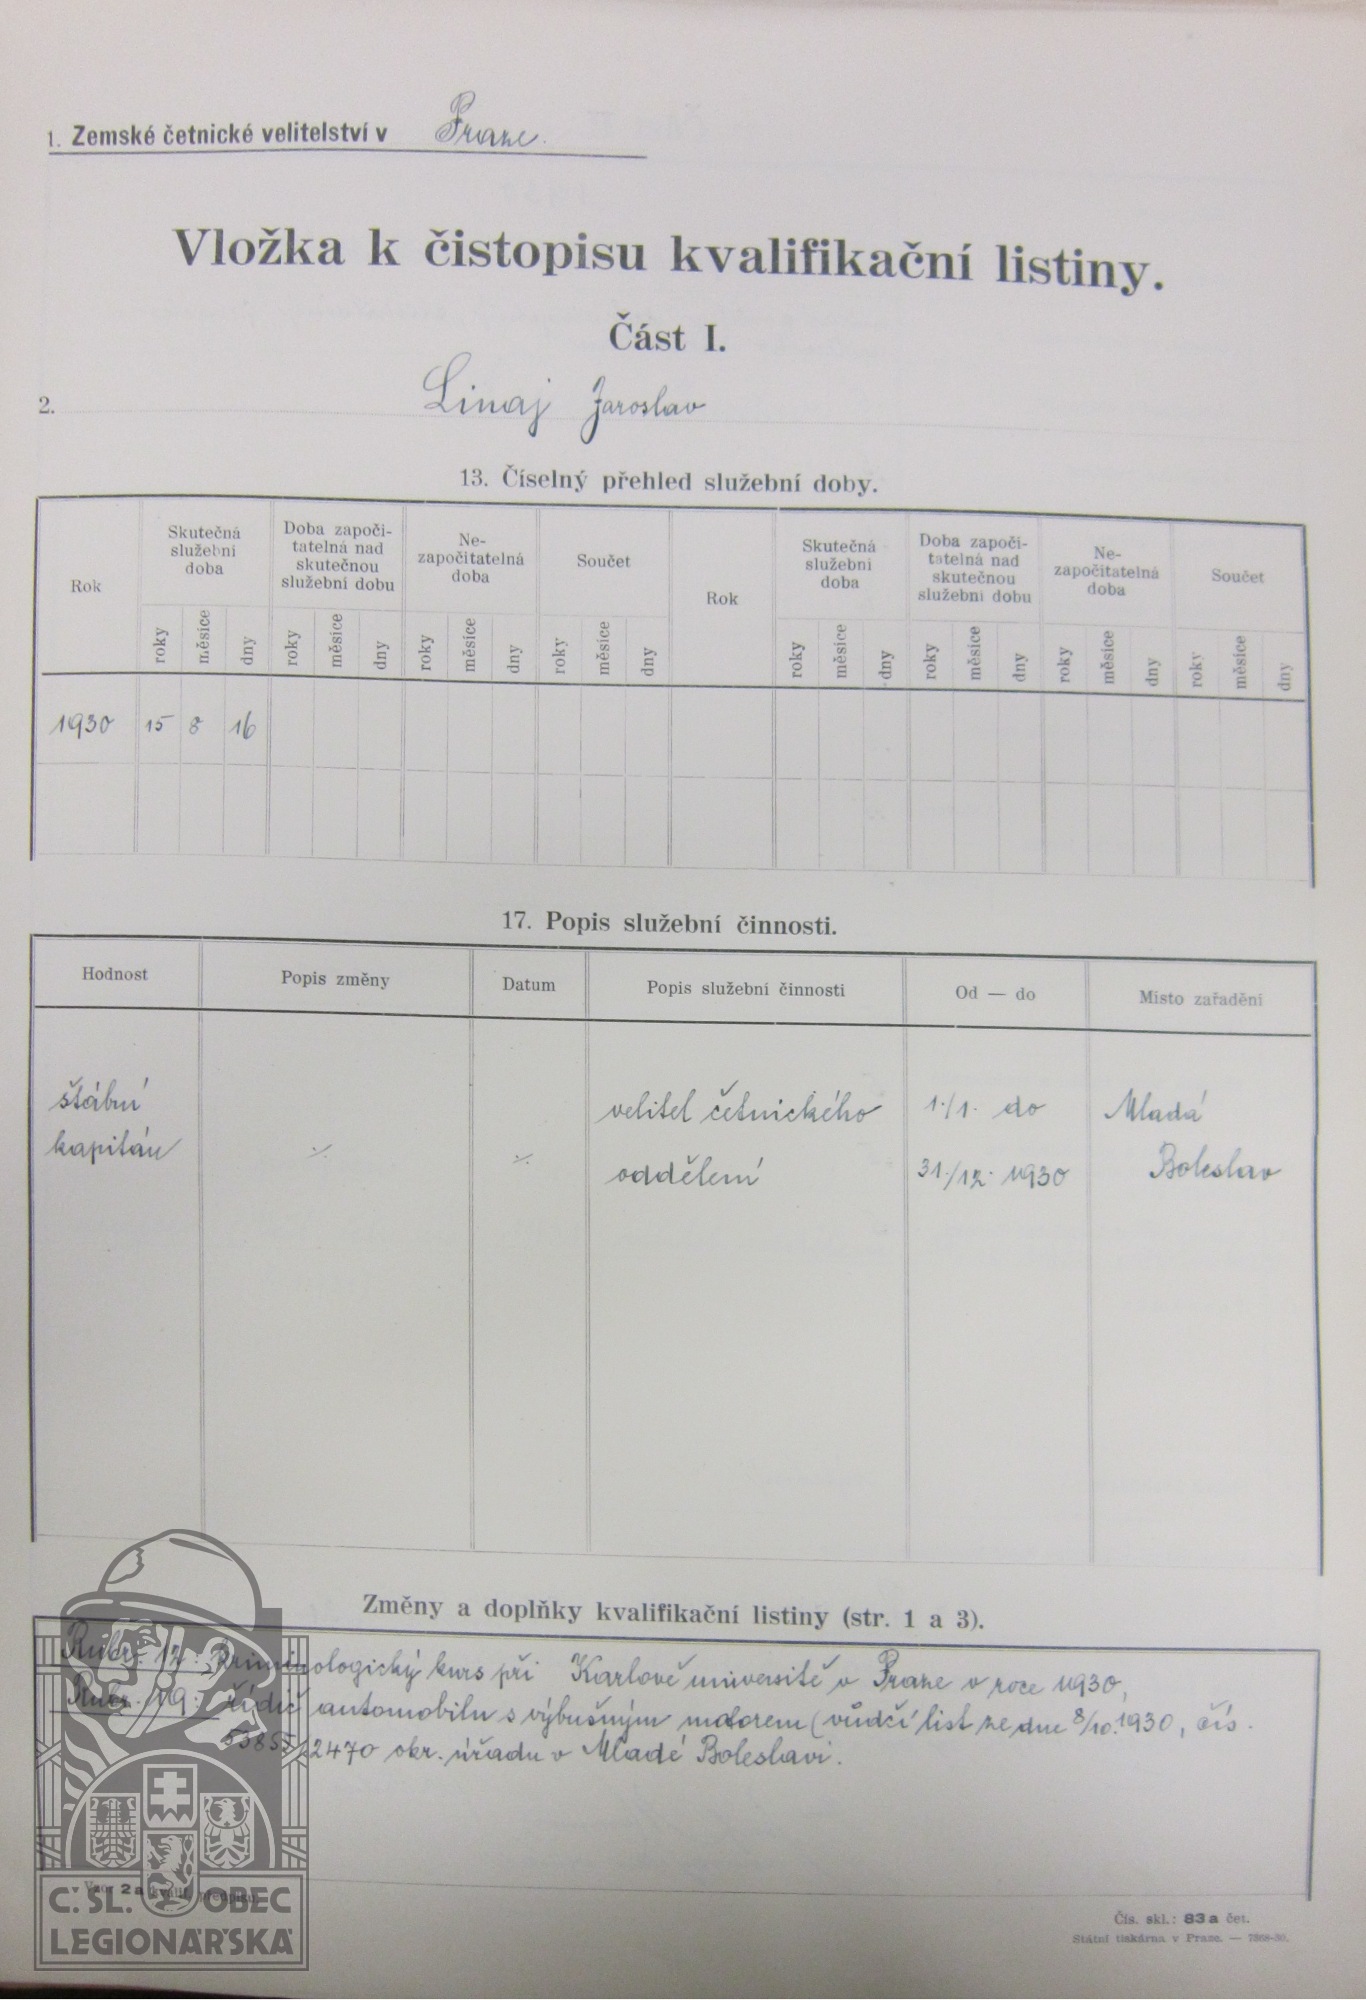 1. Zemské četnické velitelství v Praze.
Vložka k čistopisu kvalifikační listiny.
Část I.
2. Linaj Jaroslav
13. Číselný přehled služební doby.
Rok
Skutečná služební doba
Doba započi-tatelná nad skutečnou služební dobu
Ne-započitatelná doba
Součet
Rok
Skutečná služební doba
Doba započi-tatelná nad skutečnou služební dobu
Ne-započitatelná doba
Součet
roky měsíce dny roky měsíce dny roky měsíce dny roky měsíce dny roky měsíce dny roky měsíce dny roky měsíce dny roky měsíce dny
1930 15 8 16
17. Popis služební činnosti.
Hodnost Popis změny Datum Popis služební činnosti Od — do Místo zařadění
štábní velitel četnického 1./1. do Mladá
kapitán ./. ./. oddělení 31./12. 1930 Boleslav
Změny a doplňky kvalifikační listiny (str. 1 a 3).
Rubr. 12: Kriminologický kurs při Karlově universitě v Praze v roce 1930,
Rubr. 19: řidič automobilu s výbušným motorem (vůdčí list ze dne 8/10.1930, čís.
2470 okr. úřadu v Mladé Boleslavi.
Vzor 2a kvalif. předpisu.
Čís. skl.: 83a čet.
Státní tiskárna v Praze. — 7368-30.
Č. SL. OBEC
LEGIONÁŘSKÁ